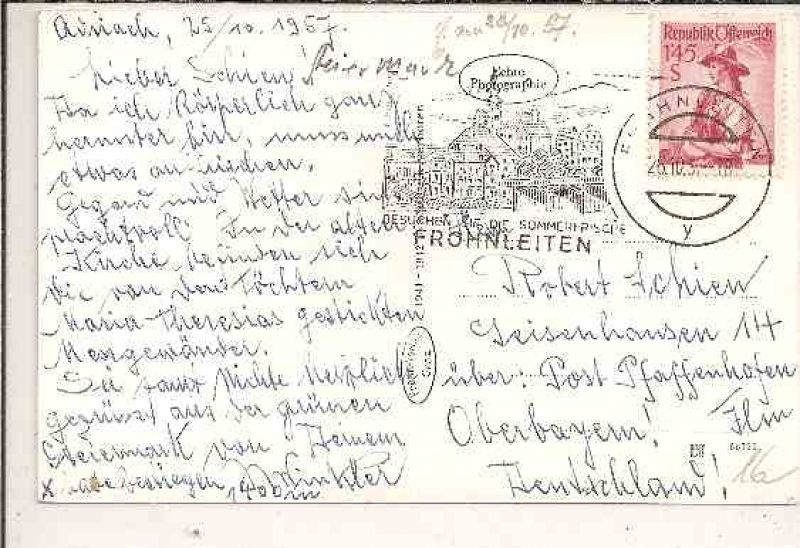 25/10. 1957.
Steiermark
28/10. 57.
Lieber Schien!
Da ich Körperlich ganz
herunter bin, muss mich
etwas
Gegend und Wetter sind
prachtvoll! In der alten
Kirche befinden sich
die von den Töchtern
Maria-Theresias gestickten
Messgewänder.
Sei samt Nichte herzlich
gegrüsst aus der grünen
Steiermark von Deinem
Winkler
Echte
Photographie
Republik Österreich
1'45
S
FROHNLEITEN
26.10.57
y
BESUCHEN SIE DIE SOMMERFRISCHE
FROHNLEITEN
Robert Schien
Geisenhausen 14
über: Post Pfaffenhofen
Oberbayern! Ilm
Deutschland!